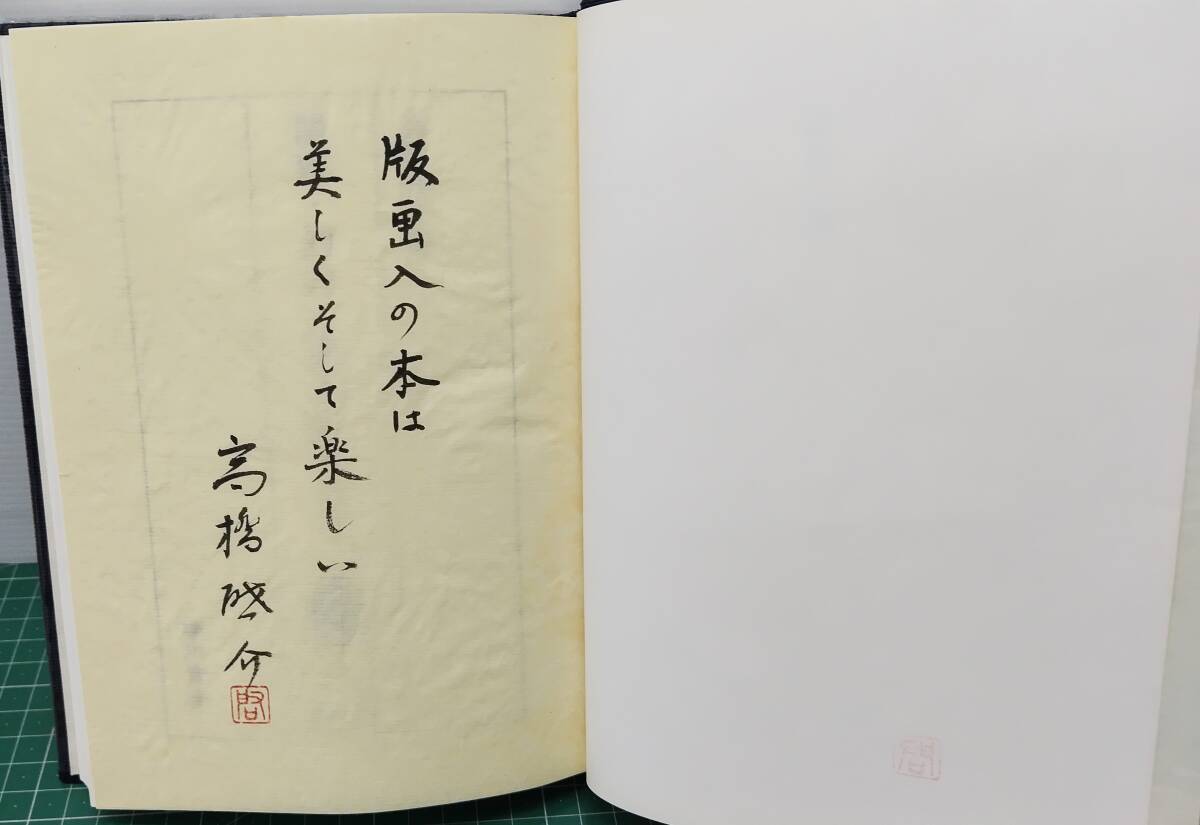 版画入の本は
美しくそして楽しい
高橋啓介
啓